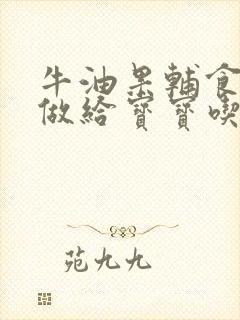 牛油果輔食
做給寶寶喫
苑九九